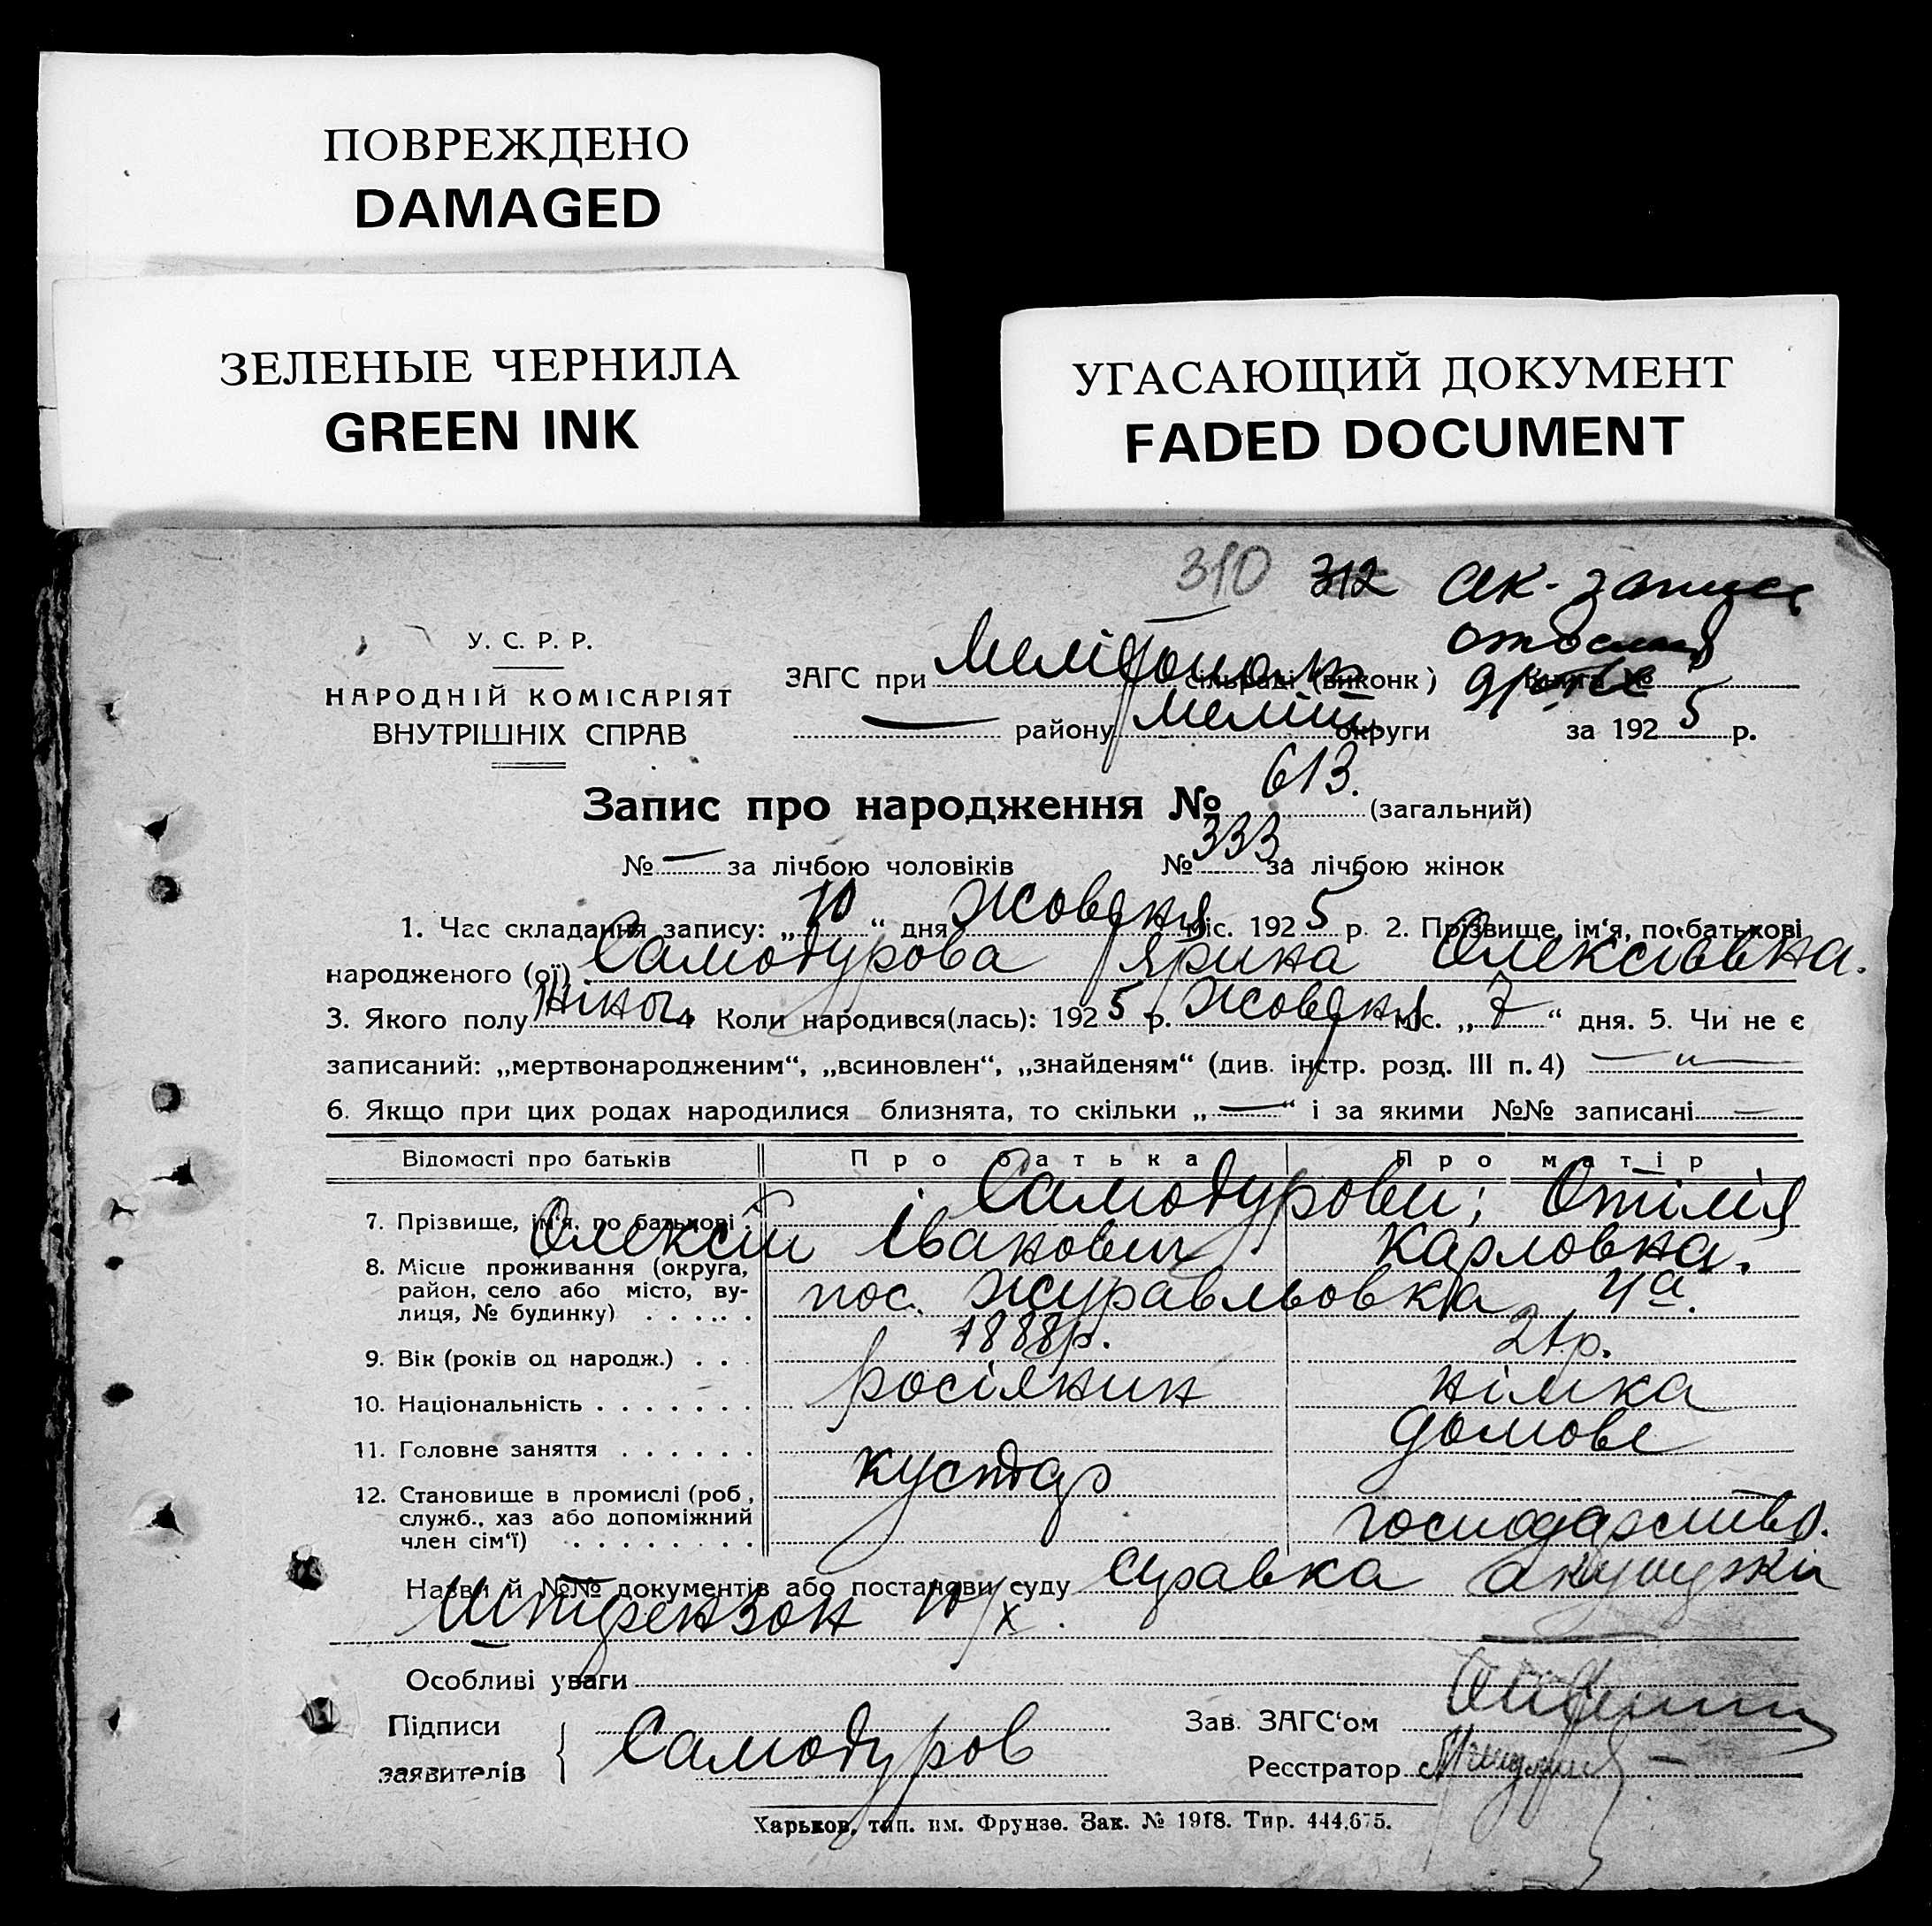 ПОВРЕЖДЕНО
DAMAGED
ЗЕЛЕНЫЕ ЧЕРНИЛА
GREEN INK
УГАСАЮЩИЙ ДОКУМЕНТ
FADED DOCUMENT
310 312 ак-запись
У. С. Р. Р.
НАРОДНІЙ КОМІСАРІЯТ
ВНУТРІШНІХ СПРАВ
ЗАГС при сільраді (виконк) Книга №
— району Меліт. округи за 1925 р.
Запис про народження № 613. (загальний)
№ — за лічбою чоловіків № 333 за лічбою жінок
1. Час складання запису: „10“ дня Жовтня міс. 1925 р. 2. Прізвище, ім‘я, по батькові
народженого (ої) Самодурова Ярина Олексіївна.
3. Якого полу жіноч. 4. Коли народився(лась): 1925 р. Жовтня міс. „7“ дня. 5. Чи не є
записаний: „мертвонародженим“, „всиновлен“, „знайденям“ (див. інстр. розд. III п. 4) — „ —
6. Якщо при цих родах народилися близнята, то скільки „—“ і за якими №№ записані —
Відомості про батьків Про батька Про матір
7. Прізвище, ім‘я, по батькові . Самодурови; Отілія
Олексій Іванович Карловна.
8. Місце проживання (округа, район, село або місто, вулиця, № будинку) . . . . . пос. Журавльовка, 4а.
9. Вік (років од народж.) . . . 1888р. 21р.
10. Національність . . . . . . . росіянин німка
11. Головне заняття . . . . . . кустар домове
12. Становище в промислі (роб., служб., хаз або допоміжний член сім‘ї) . . . . . . . . господарство.
Назви й №№ документів або постанови суду Справка акушерки
Штерензон 10/X.
Особливі уваги
Підписи заявителів { Самодуров
Зав. ЗАГС‘ом
Реєстратор
Харьков, тип. им. Фрунзе. Зак. № 1918. Тир. 444.675.